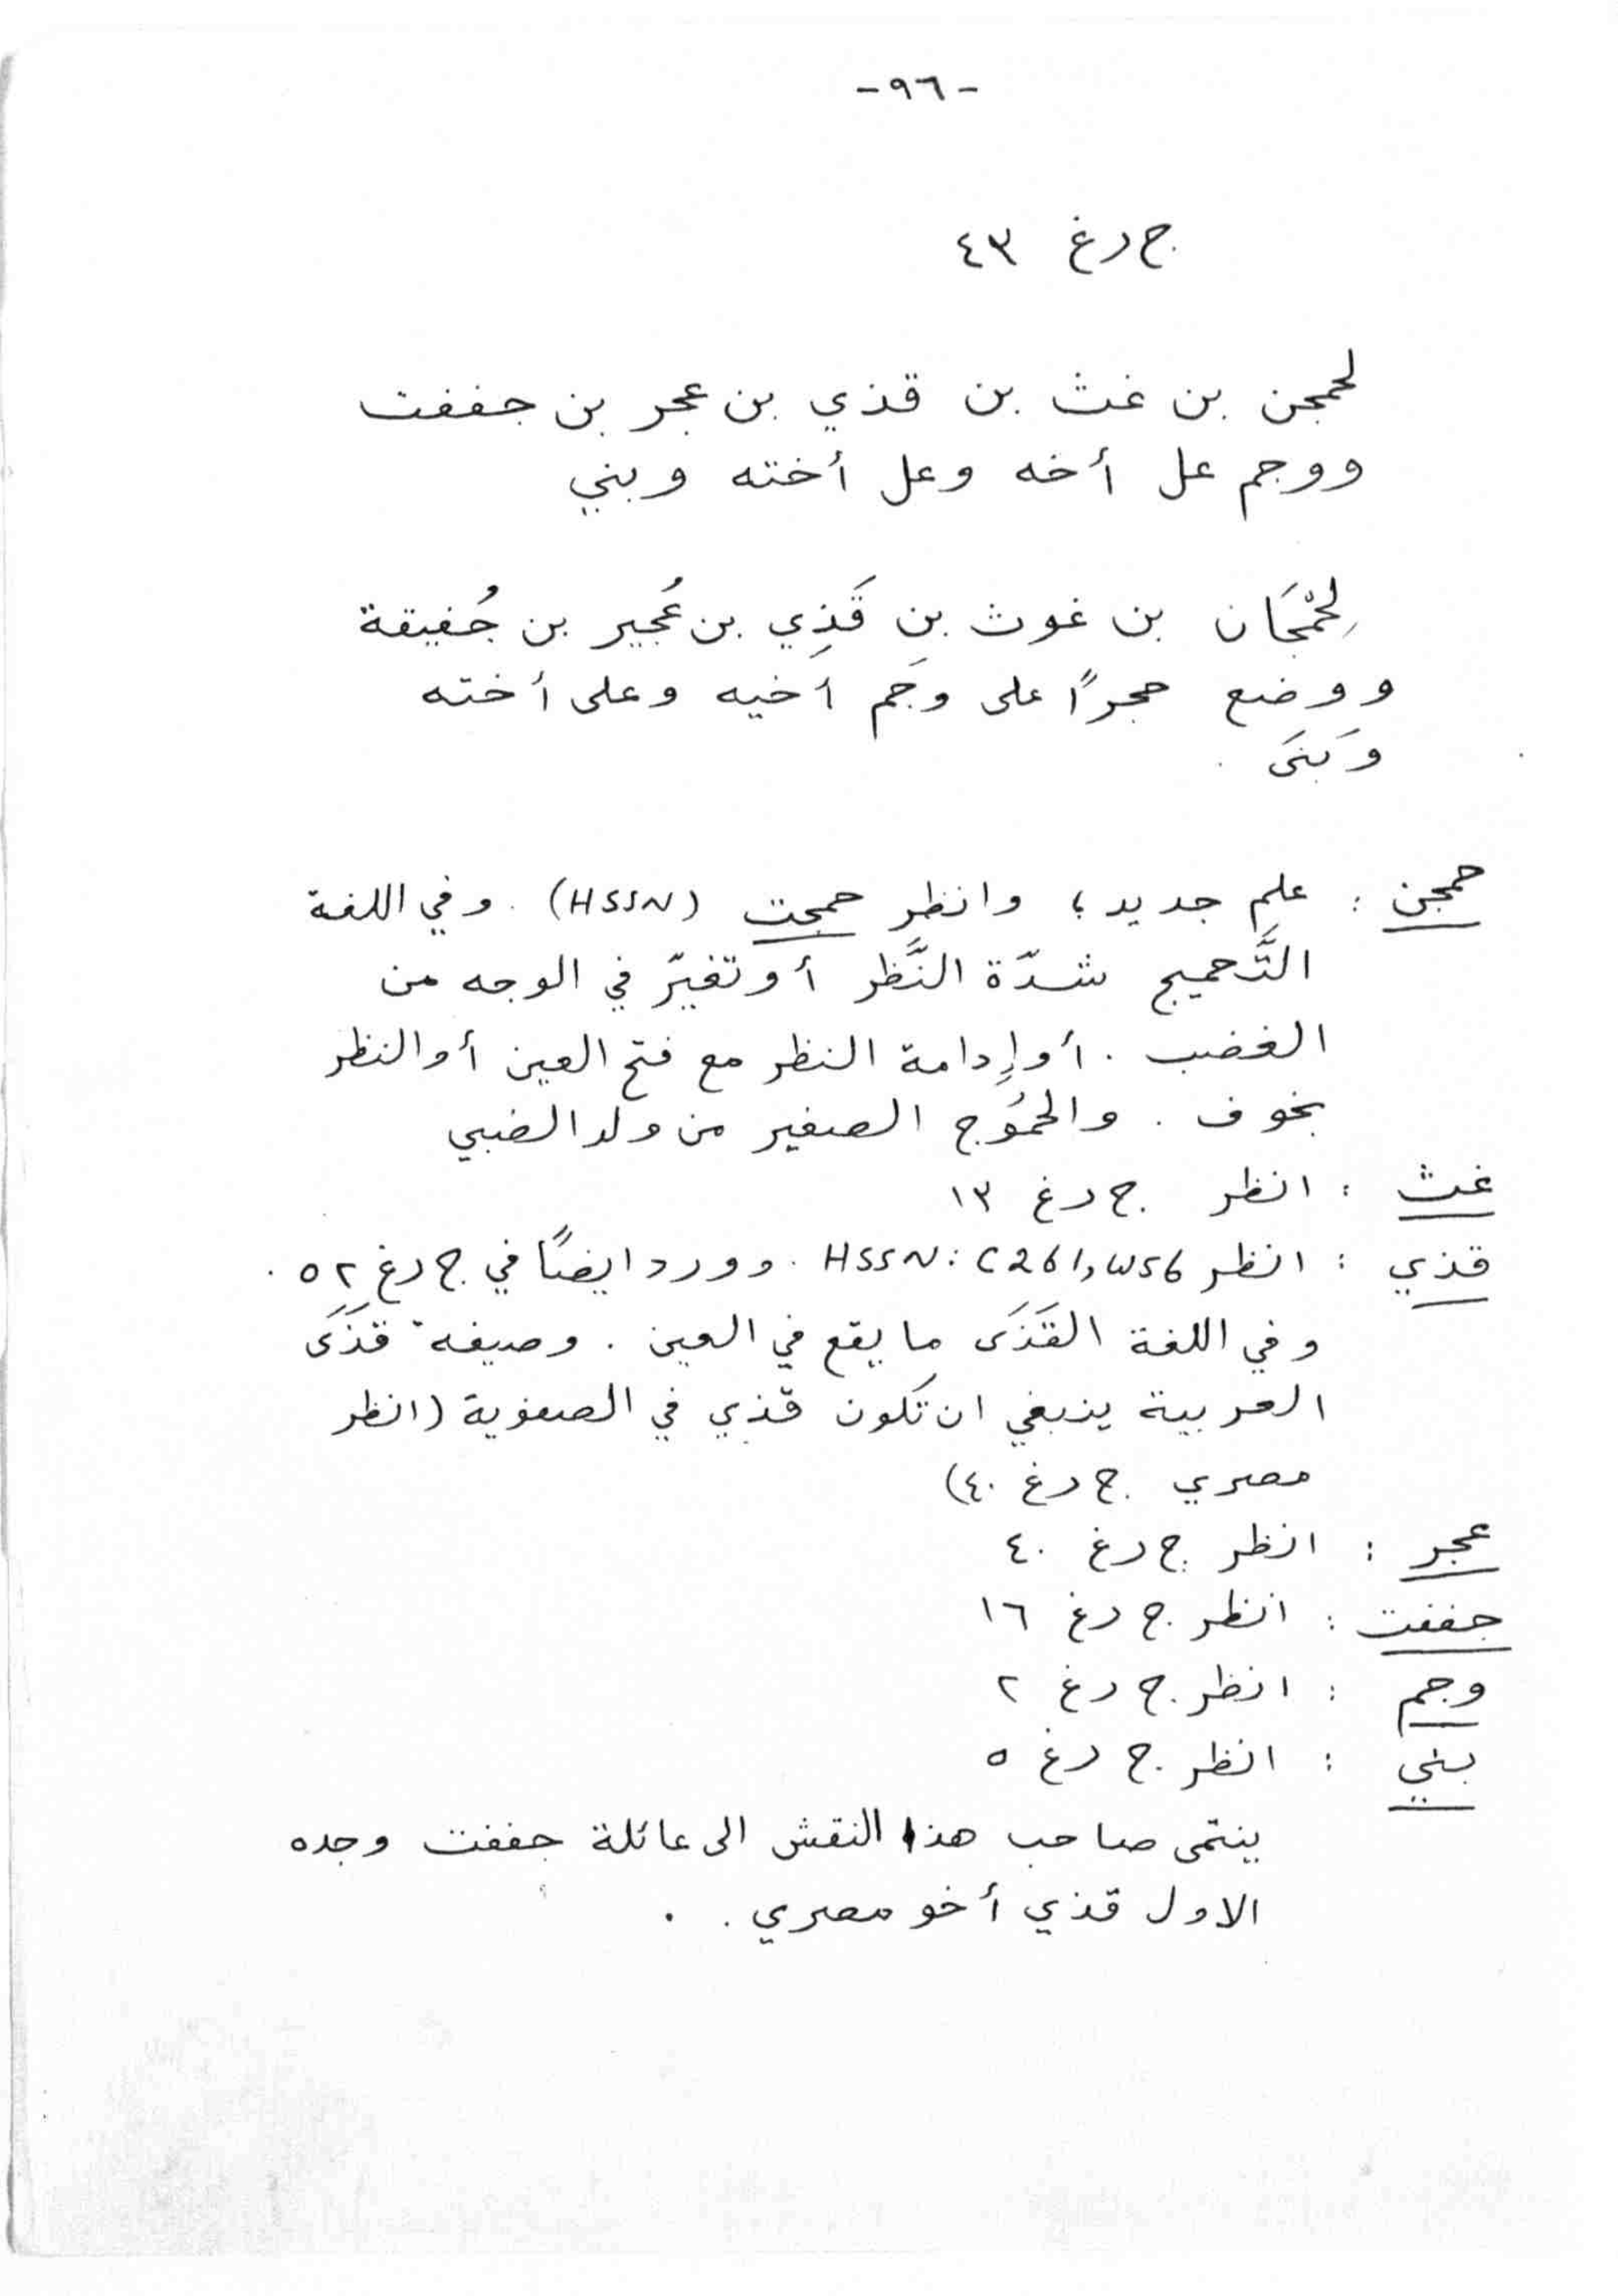 -٩٦-
ج رغ ٤٣
لحمجن بن غث بن قذي بن عجر بن جففت
ووجم عل أخه وعل أخته وبني
لِحَمّجَان بن غوث بن قَذِي بن عُجير بن جُفيقة
ووضع حجراً على وَجم أخيه وعلى أخته
وَبَنَى .
حمجن : علم جديد ؛ وانظر حمجت (HSSN) . وفي اللغة
التَّحميج شدّة النَّظر أو تغيّر في الوجه من
الغضب . أو إِدامة النظر مع فتح العين أو النظر
بخوف . والحمُوج الصغير من ولد الضبي
غث : انظر ج رغ ١٣
قذي : انظر HSSN: C261, W56 . وورد ايضًا في ج رغ ٥٢ .
وفي اللغة القَذَى ما يقع في العين . وصيغه قَذَى
العربية ينبغي ان تَكون قذي في الصفوية (انظر
مصري ج رغ ٤٠)
عجر : انظر ج رغ ٤٠
جففت : انظر ج رغ ١٦
وجم : انظر ج رغ ٢
بني : انظر ج رغ ٥
ينتمى صاحب هذا النقش الى عائلة جففت وجده
الاول قذي أخو مصري .